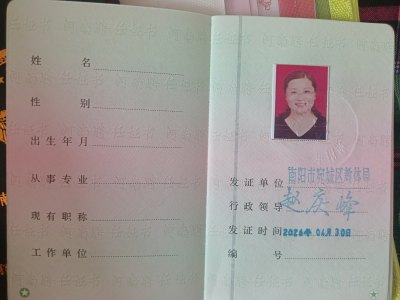 姓 名
性 别
出生年月
从事专业
现有职称
工作单位
发证单位 南阳市宛城区教体局
行政领导 赵庆峰
发证时间 2024年 04月 30日
编 号